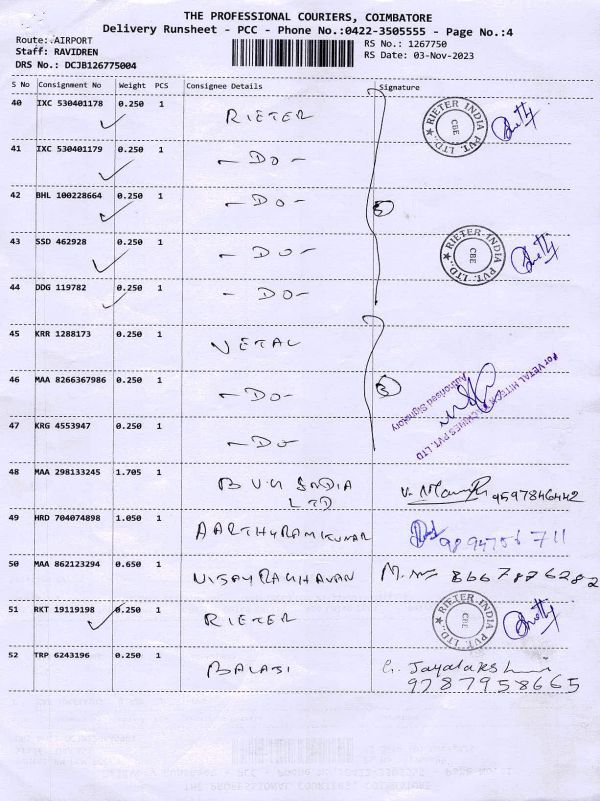 THE PROFESSIONAL COURIERS, COIMBATORE
Delivery Runsheet - PCC - Phone No.:0422-3505555 - Page No.:4
Route: AIRPORT
Staff: RAVIDREN
DRS No.: DCJB126775004
RS No.: 1267750
RS Date: 03-Nov-2023
S No Consignment No Weight PCS Consignee Details Signature
40 IXC 530401178 0.250 1 RIETER
RIETER INDIA PVT. LTD. CBE
41 IXC 530401179 0.250 1 -DO-
42 BHL 100228664 0.250 1 -DO- 5
43 SSD 462928 0.250 1 -DO-
RIETER INDIA PVT. LTD. CBE
44 DDG 119782 0.250 1 -DO-
45 KRR 1288173 0.250 1 VETAL
46 MAA 8266367986 0.250 1 -DO- 3
For VETAL HITECH PVT. LTD
Authorised Signatory
47 KRG 4553947 0.250 1 -DO-
48 MAA 298133245 1.705 1 BVG INDIA
LTD
9597846442
49 HRD 704074898 1.050 1 AARTHYRAMKUMAR 9894756711
50 MAA 862123294 0.650 1 VIJAYRAGHAVAN 8667826282
51 RKT 19119198 0.250 1 RIETER
RIETER INDIA PVT. LTD. CBE
52 TRP 6243196 0.250 1 BALAJI G. Jayalakshmi
9787958665